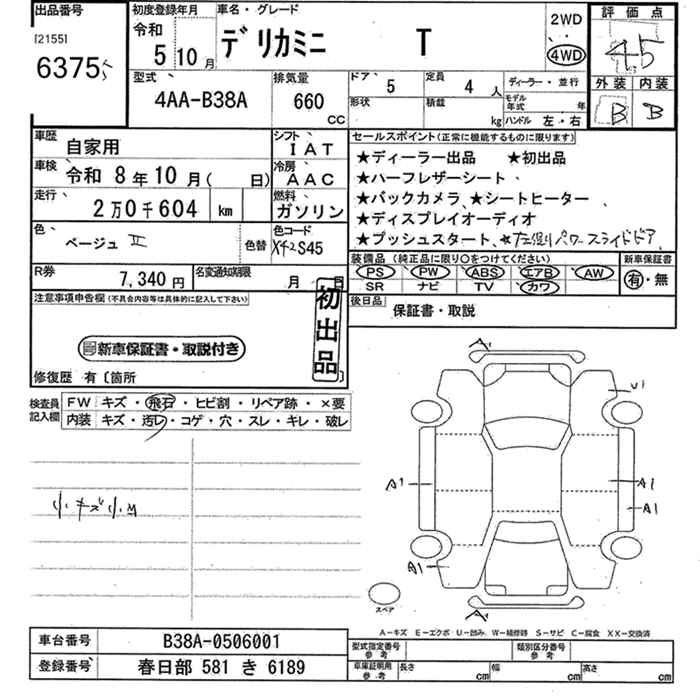 出品番号 初度登録年月 車名・グレード 2WD 評価点
[2155] 令和 デリカミニ T 4WD 4.5
6375 5 10月
型式 排気量 ドア 5 定員 4 人 ディーラー・並行 外装 内装
4AA-B38A 660 CC 形状 積載 kg モデル年式 年 B B
ハンドル 左・右
車歴 自家用 シフト IAT セールスポイント(正常に機能するものに限ります)
車検 令和 8年10月( 日) 冷房 AAC ★ディーラー出品 ★初出品
★ハーフレザーシート
走行 2万0千604 km 燃料 ガソリン ★バックカメラ ★シートヒーター
★ディスプレイオーディオ
色 ベージュ II 色替 色コード X42S45 ★プッシュスタート ★左側パワースライドドア
装備品(純正品に限り○をつけてください) 新車保証書
R券 7,340円 名変通知期限 月 日 PS PW ABS エアB AW 有・無
SR ナビ TV カワ
注意事項申告欄(不具合内容等は具体的に記入して下さい) 初出品 後日品 保証書・取説
新車保証書・取説付き
修復歴 有〔箇所
検査員記入欄 FW キズ・飛石・ヒビ割・リペア跡・×要
内装 キズ・汚レ・コゲ・穴・スレ・キレ・破レ
A1
U1
A1 A1
A1
A1
小キズ小凹
スペア
A1
A−キズ E−エクボ U−凹み W−補修跡 S−サビ C−腐食 XX−交換済
車台番号 B38A-0506001 型式指定番号 参考 類別区分番号 参考
登録番号 春日部 581 き 6189 車庫証明用 参考 長さ cm 幅 cm 高さ cm